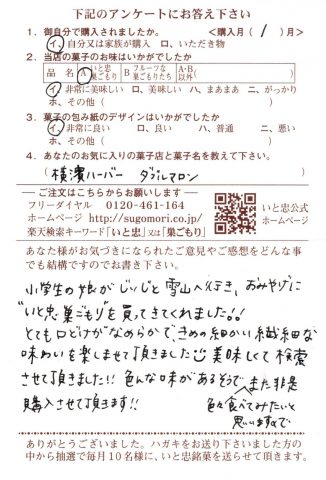 下記のアンケートにお答え下さい
1. 御自分で購入されましたか。 <購入月( 1 )月>
イ、自分又は家族が購入 ロ、いただき物
2. 当店の菓子のお味はいかがでしたか
品名 A いと忠巣ごもり B フルーツな巣ごもりたち A・B以外( )
イ、非常に美味しい ロ、美味しい ハ、まあまあ ニ、がっかり
ホ、その他( )
3. 菓子の包み紙のデザインはいかがでしたか
イ、非常に良い ロ、良い ハ、普通 ニ、悪い
ホ、その他( )
4. あなたのお気に入りの菓子店と菓子名を教えて下さい。
横濱ハーバー ダブルマロン
ご注文はこちらからお願いします
フリーダイヤル 0120-461-164
ホームページ http://sugomori.co.jp/
楽天検索キーワード「いと忠」又は「巣ごもり」
いと忠公式
ホームページ
あなた様がお気づきになられたご意見やご感想をどんな事
でも結構ですのでお書き下さい。
小学生の娘がじぃじと雪山へ行き、おみやげに
"いと忠巣ごもり"を買ってきてくれました!!
とても口どけがなめらかで、きめの細かい繊細な
味わいを楽しませて頂きました 美味しくて検索
させて頂きました!! 色んな味があるそうで、また是非
購入させて頂きます!! 色々食べてみたいと
思いますので
ありがとうございました。ハガキをお送り下さいました方の
中から抽選で毎月10名様に、いと忠銘菓を送らせて頂きます。